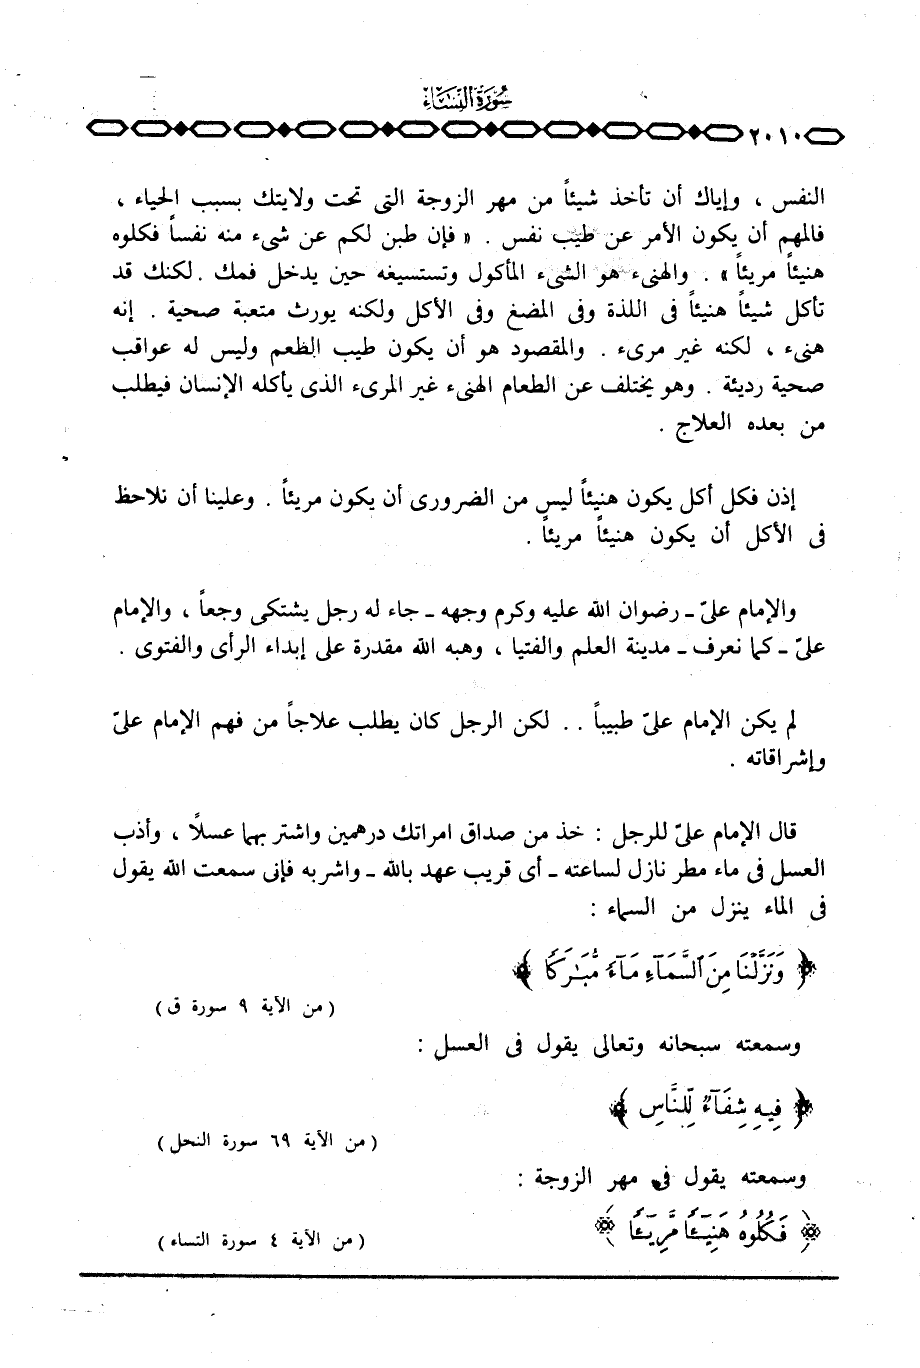 سُورَةُ النِّسَاءِ
٢٠١٠
النفس ، وإياك أن تأخذ شيئاً من مهر الزوجة التى تحت ولايتك بسبب الحياء ،
فالمهم أن يكون الأمر عن طيب نفس . « فإن طبن لكم عن شىء منه نفساً فكلوه
هنيئاً مريئاً » . والهنىء هو الشىء المأكول وتستسيغه حين يدخل فمك . لكنك قد
تأكل شيئاً هنيئاً فى اللذة وفى المضغ وفى الأكل ولكنه يورث متعبة صحية . إنه
هنىء ، لكنه غير مرىء . والمقصود هو أن يكون طيب الطعم وليس له عواقب
صحية رديئة . وهو يختلف عن الطعام الهنىء غير المرىء الذى يأكله الإنسان فيطلب
من بعده العلاج .
إذن فكل أكل يكون هنيئاً ليس من الضرورى أن يكون مريئاً . وعلينا أن نلاحظ
فى الأكل أن يكون هنيئاً مريئاً .
والإمام علىّ ـ رضوان الله عليه وكرم وجهه ـ جاء له رجل يشتكى وجعاً ، والإمام
علىّ ـ كما نعرف ـ مدينة العلم والفتيا ، وهبه الله مقدرة على إبداء الرأى والفتوى .
لم يكن الإمام علىّ طبيباً . . لكن الرجل كان يطلب علاجاً من فهم الإمام علىّ
وإشراقاته .
قال الإمام علىّ للرجل : خذ من صداق امراتك درهمين واشتر بهما عسلًا ، وأذب
العسل فى ماء مطر نازل لساعته ـ أى قريب عهد بالله ـ واشربه فإنى سمعت الله يقول
فى الماء ينزل من السماء :
﴿ وَنَزَّلْنَا مِنَ ٱلسَّمَآءِ مَآءً مُّبَٰرَكًا ﴾
( من الآية ٩ سورة ق )
وسمعته سبحانه وتعالى يقول فى العسل :
﴿ فِيهِ شِفَآءٌ لِّلنَّاسِ ﴾
( من الآية ٦٩ سورة النحل )
وسمعته يقول فى مهر الزوجة :
﴿ فَكُلُوهُ هَنِيٓـًٔا مَّرِيٓـًٔا ﴾
( من الآية ٤ سورة النساء )